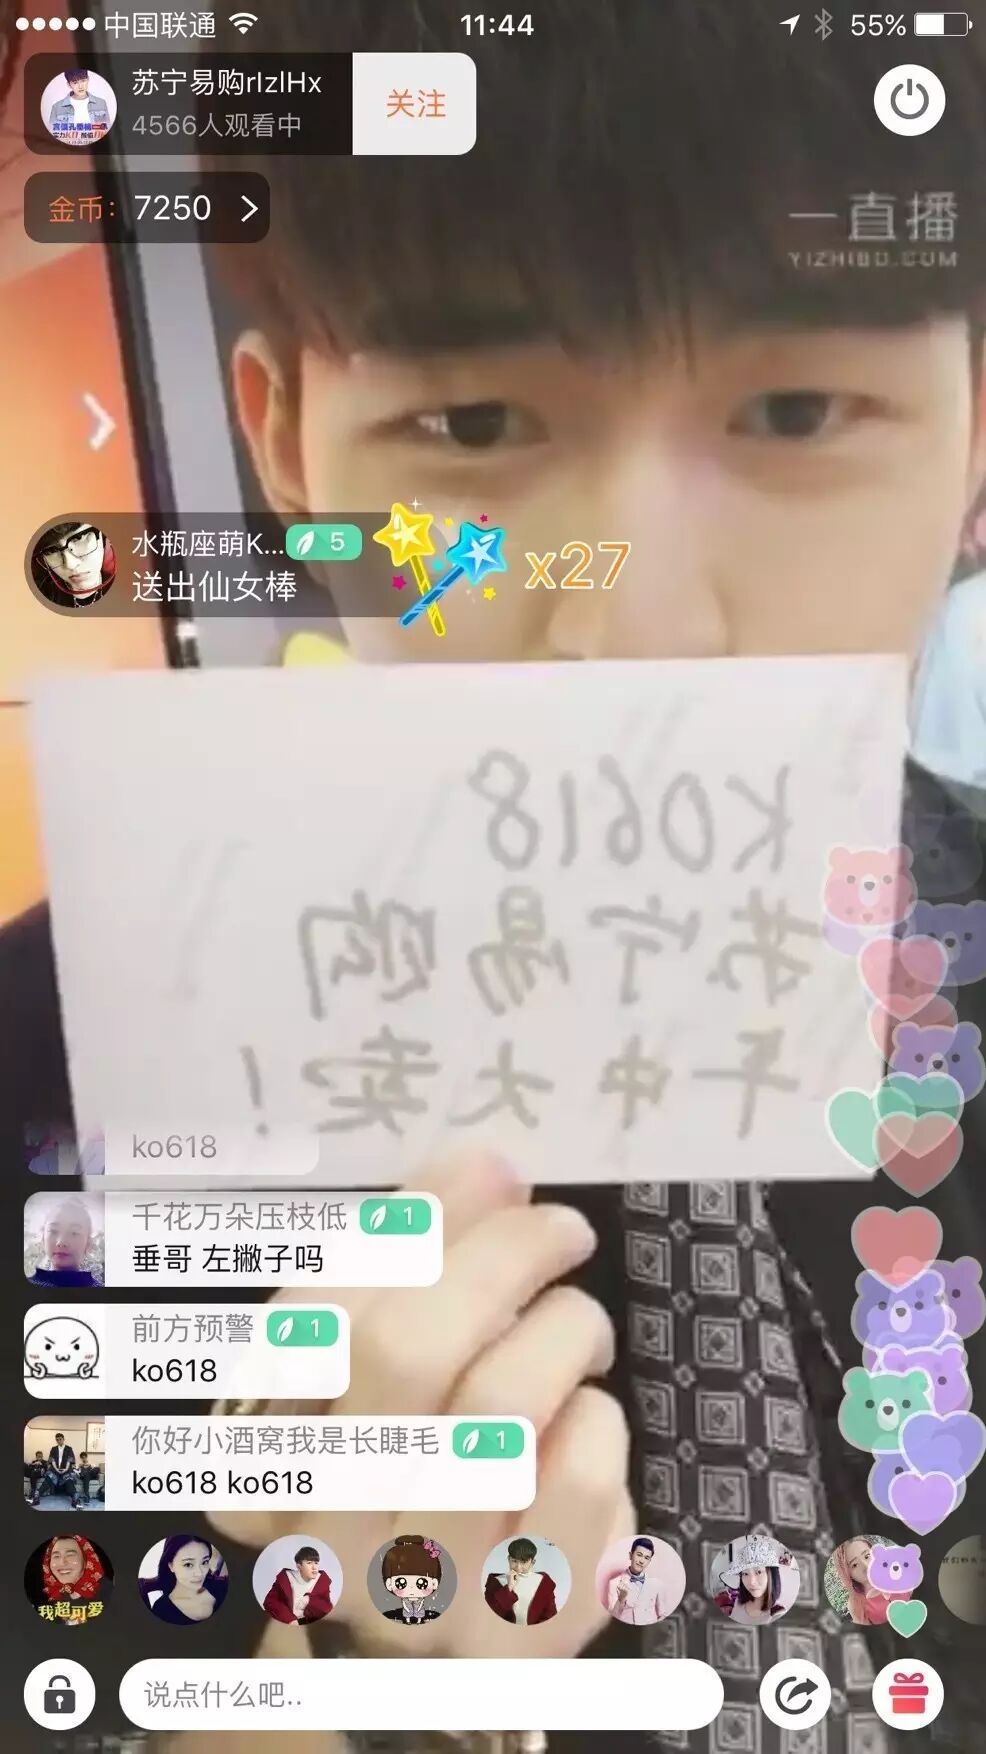 中国联通 11:44 55%
苏宁易购rIzlHx
4566人观看中
关注
金币：7250
一直播
YIZHIBO.COM
水瓶座萌K... 5
送出仙女棒
x27
KO618
苏宁易购
年中大卖！
ko618
千花万朵压枝低 1
垂哥 左撇子吗
前方预警 1
ko618
你好小酒窝我是长睫毛 1
ko618 ko618
我超可爱
说点什么吧..